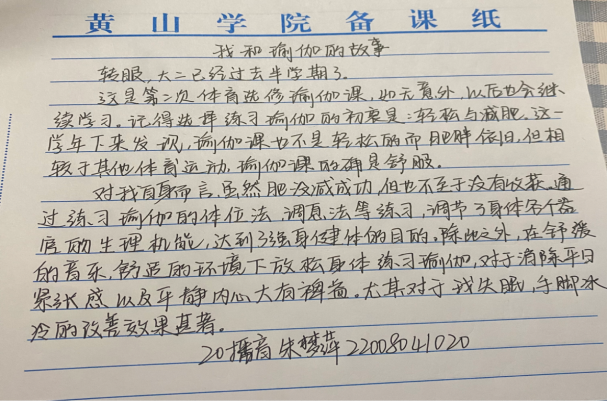 黄山学院备课纸
我和瑜伽的故事
转眼,大二已经过去半学期了。
这是第二次体育选修瑜伽课,如无意外,以后也会继
续学习。记得选择练习瑜伽的初衷是:轻松与减肥。这一
学年下来发现,瑜伽课也不是轻松的而肥胖依旧,但相
较于其他体育运动,瑜伽课的确是舒服。
对我自身而言,虽然肥没减成功,但也不至于没有收获。通
过练习瑜伽的体位法、调息法等练习,调节了身体各个器
官的生理机能,达到了强身健体的目的。除此之外,在舒缓
的音乐、舒适的环境下放松身体练习瑜伽,对于消除平日
紧张感以及平静内心大有裨益。尤其对于我失眠,手脚冰
冷的改善效果甚著。
20播音 朱梦萍 22008041020